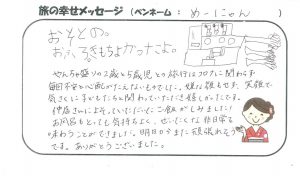 旅の幸せメッセージ （ペンネーム： めーにゃん ）
おととの。
おふろきもちよかったよ。
やんちゃ盛りの2歳と5歳児との旅行はコロナに関わらず
毎回不安と心配がたえないものでした。嫌な顔もせず、笑顔で
気さくに子どもたちと関わっていただき嬉しかったです。
仲居さんによそっていただいたご飯がしみました！
お風呂もとっても気持ちよく、ぜいたくな非日常を
味わうことができました。明日からまた頑張れそう
です。ありがとうございました。